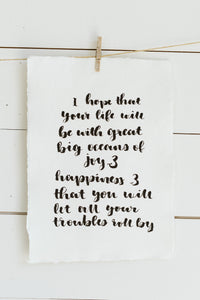 I hope that
your life will
be with great
big oceans of
joy &
happiness &
that you will
let all your
troubles roll by